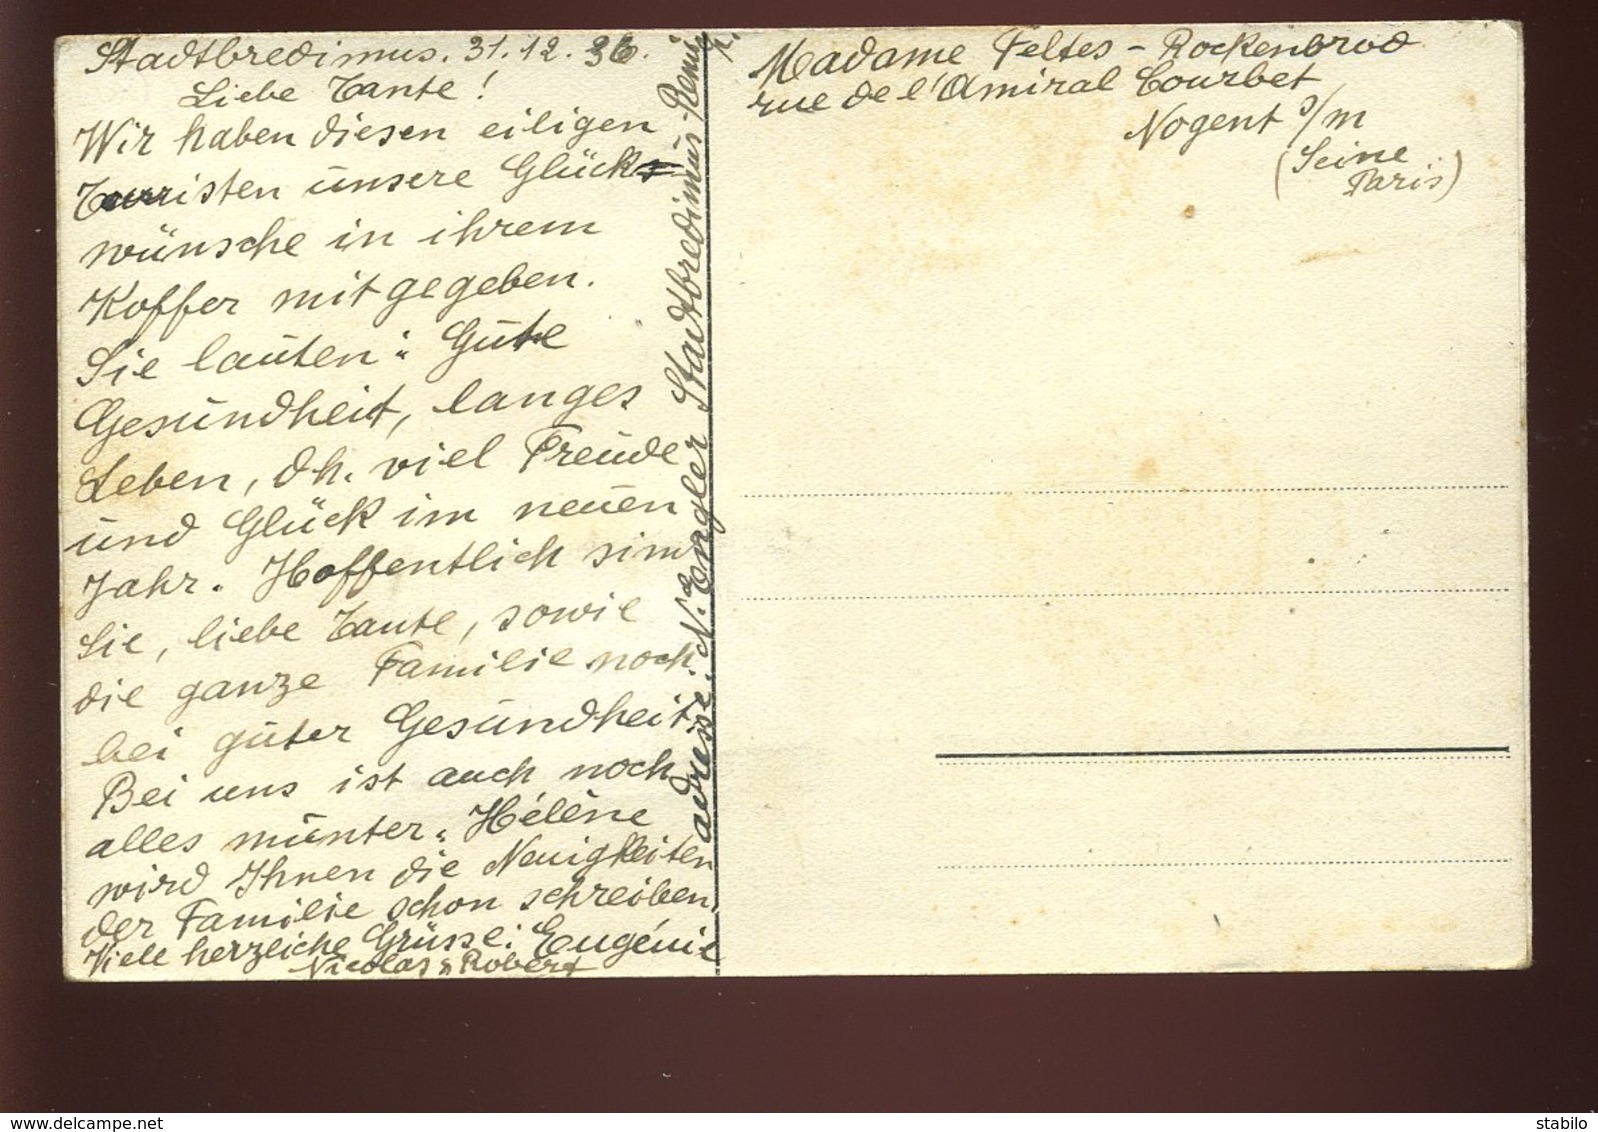 Stadtbredimus. 31.12.36.
Liebe Tante!
Wir haben diesen eiligen
Turristen unsere Glück
wünsche in ihrem
Koffer mitgegeben.
Sie lauten: Gute
Gesundheit, langes
Leben, dh. viel Freude
und Glück im neuen
Jahr. Hoffentlich sim
Sie, liebe Tante, sowie
die ganze Familie noch
bei guter Gesundheit
Bei uns ist auch noch
alles munter. Hélène
wird Ihnen die Neuigkeiten
der Familie schon schreiben.
Viele herzliche Grüsse: Eugénie
Nicolas & Robert
adresse: N. Engler Stadtbredimus-Remich
Madame Feltes - Rockenbrod
rue de l'Amiral Courbet
Nogent s/m
(Seine
Paris)
www.delcampe.net
stabilo